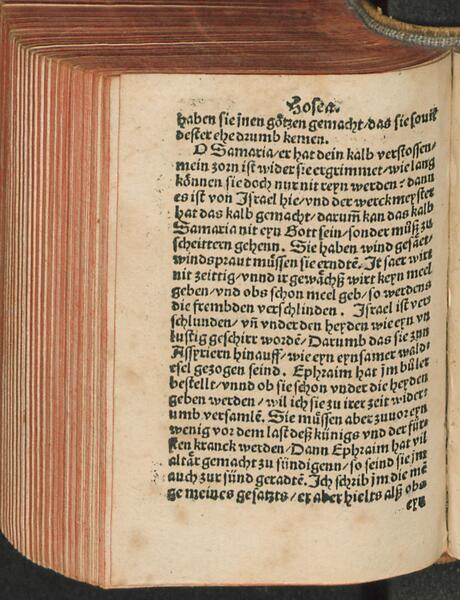 Hosea.
haben sie jnen götzen gemacht/das sie souil
dester ehe drumb kemen.
O Samaria/er hat dein kalb verstossen/
mein zorn ist wider sie ergrimmet/wie lang
können sie doch nur nit reyn werden? dann
es ist von Israel hie/vnd der werckmeyster
hat das kalb gemacht/darum̃ kan das kalb
Samaria nit eyn Gott sein/sonder můß zů
scheittern gehenn. Sie haben wind gesäet/
windspraut müssen sie erndtẽ. It saer wirt
nit zeittig/vnnd ir gewächß wirt keyn meel
geben/vnd obs schon meel geb/so werdens
die frembden verschlinden. Israel ist ver
schlunden/vñ vnder den heyden wie eyn vn
lustig geschirr wordẽ/Darumb das sie zun
Assyriern hinauff/wie eyn eynsamer wald
esel gezogen seind. Ephraim hat jm bůler
bestellt/vnnd ob sie schon vnder die heyden
geben werden/wil ich sie zu irer zeit wider
umb versamlẽ. Sie müssen aber zuuor eyn
wenig vor dem last deß künigs vnd der für
sten kranck werden/Dann Ephraim hat vil
altär gemacht zu sündigenn/so seind sie jm
auch zur sünd geradtẽ. Ich schrib jm die mẽ
ge meines gesätzts/er aber hielts alß obs
eyn